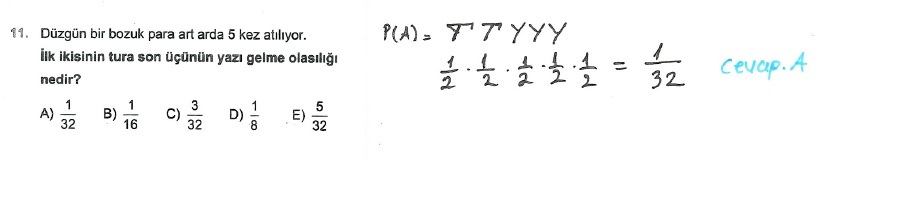 11. Düzgün bir bozuk para art arda 5 kez atılıyor.
İlk ikisinin tura son üçünün yazı gelme olasılığı
nedir?
A) 1/32 B) 1/16 C) 3/32 D) 1/8 E) 5/32
P(A) = T T Y Y Y
1/2 . 1/2 . 1/2 . 1/2 . 1/2 = 1/32 Cevap. A